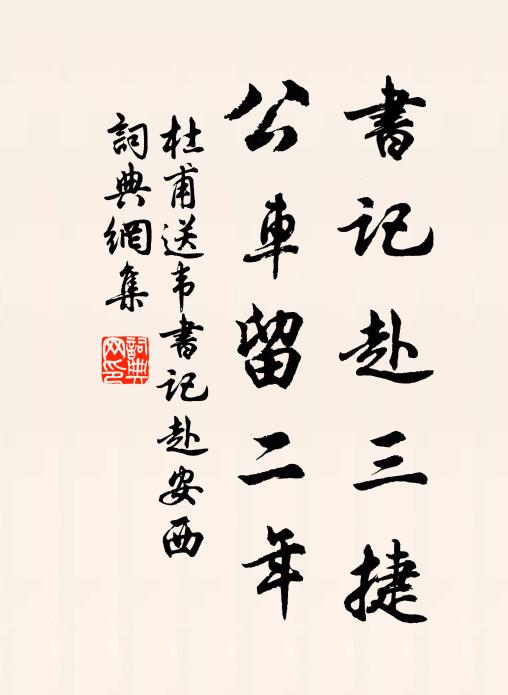 書記赴三捷
公車留二年
杜甫送韦書记赴安西
詞典網集
詞典
网印